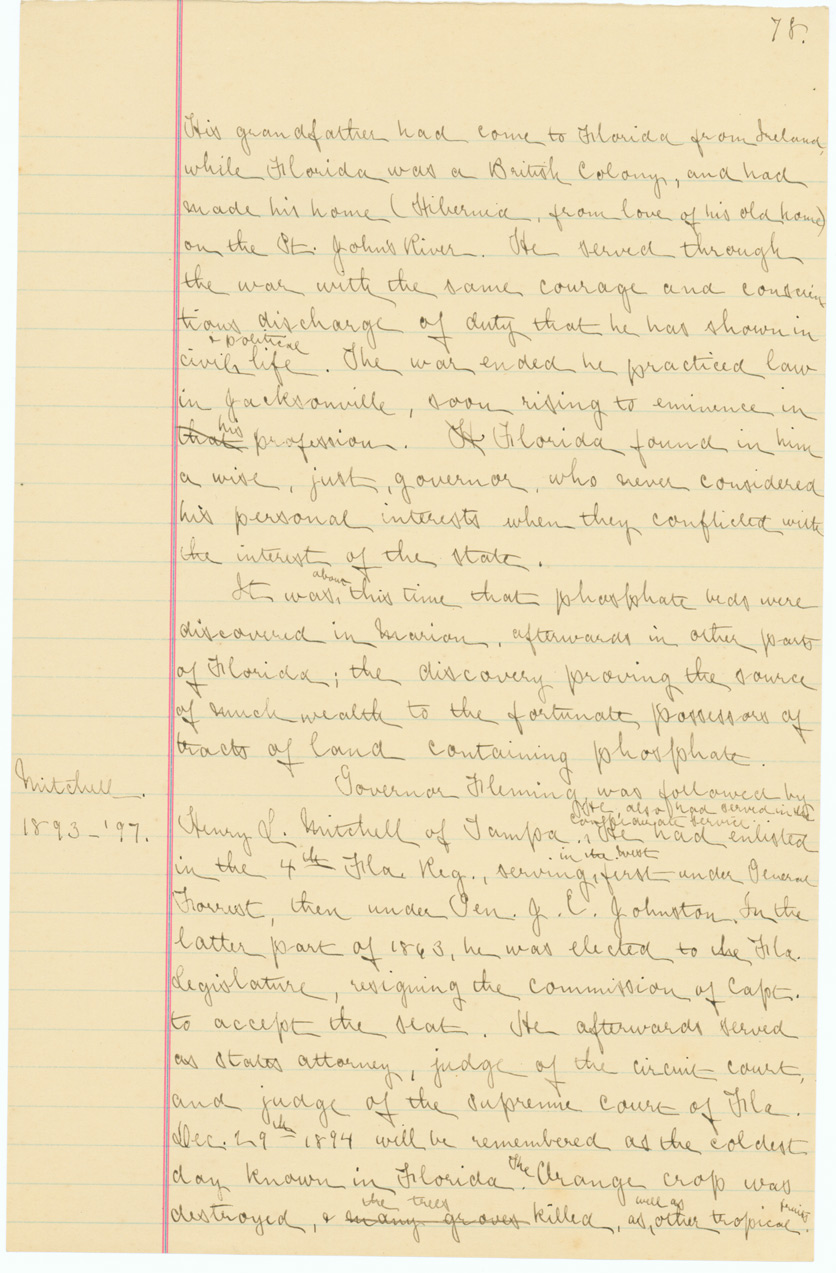 78.
His grandfather had come to Florida from Ireland,
while Florida was a British Colony, and had
made his home (Hibernia, from love of his old home)
on the St. John's River. He served through
the war with the same courage and conscien-
tious discharge of duty that he has shown in
& political
civil life. The war ended he practiced law
in Jacksonville, soon rising to eminence in
his
that profession. H Florida found in him
a wise, just, governor, who never considered
his personal interests when they conflicted with
the interest of the state.
about
It was this time that phosphate beds were
discovered in Marion, afterwards in other parts
of Florida; the discovery proving the source
of much wealth to the fortunate possessors of
tracts of land containing phosphate.
Mitchell.
Governor Fleming was followed by
He, also had served in the
Confederate service.
1893-'97.
Henry L. Mitchell of Tampa. He had enlisted
in the west
in the 4th Fla. Reg., serving first under General
Forrest, then under Gen. J. E. Johnston. In the
latter part of 1863, he was elected to the Fla.
Legislature, resigning the commission of Capt.
to accept the seat. He afterwards served
as states attorney, judge of the circuit court,
and judge of the supreme court of Fla.
Dec. 29th 1894 will be remembered as the coldest
The
day known in Florida. Orange crop was
the trees well as fruits
destroyed, & many groves killed, as, other tropical.